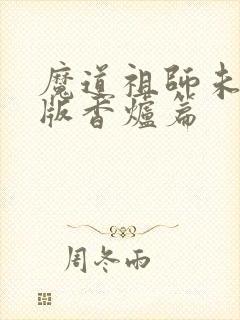 魔道祖師未
版香爐篇
周冬雨